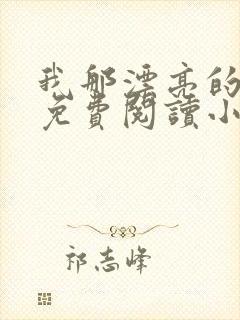 我那漂亮的
免費閱讀小
祁志峰